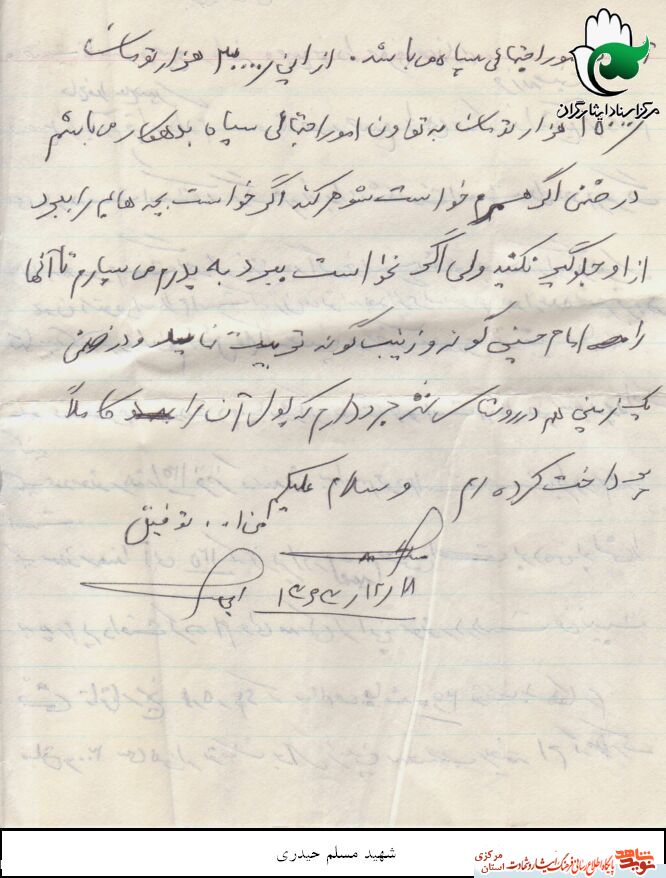 امور اجتماعی سپاه می باشد. از این ۳۰۰۰۰ هزار تومان
مرکز اسناد ایثارگران
۱۵۰۰۰ هزار تومان به تعاون امور اجتماعی سپاه بدهکار می باشم
در ضمن اگر همسرم خواست شوهر کند اگر خواست بچه هایم را ببرد
از او جلوگیری نکنید ولی اگر نخواست ببرد به پدرم می سپارم تا آنها
را امام حسینی گونه و زینب گونه تربیت نماید و در ضمن
یک زمینی هم در روستای دارم که پول آن را کاملاً
پرداخت کرده ام وسلام علیکم
من ا.. توفیق
۱۳۶۳
شهید مسلم حیدری
نوید شاهد
پایگاه اطلاع رسانی فرهنگ ایثار و شهادت
استان مرکزی